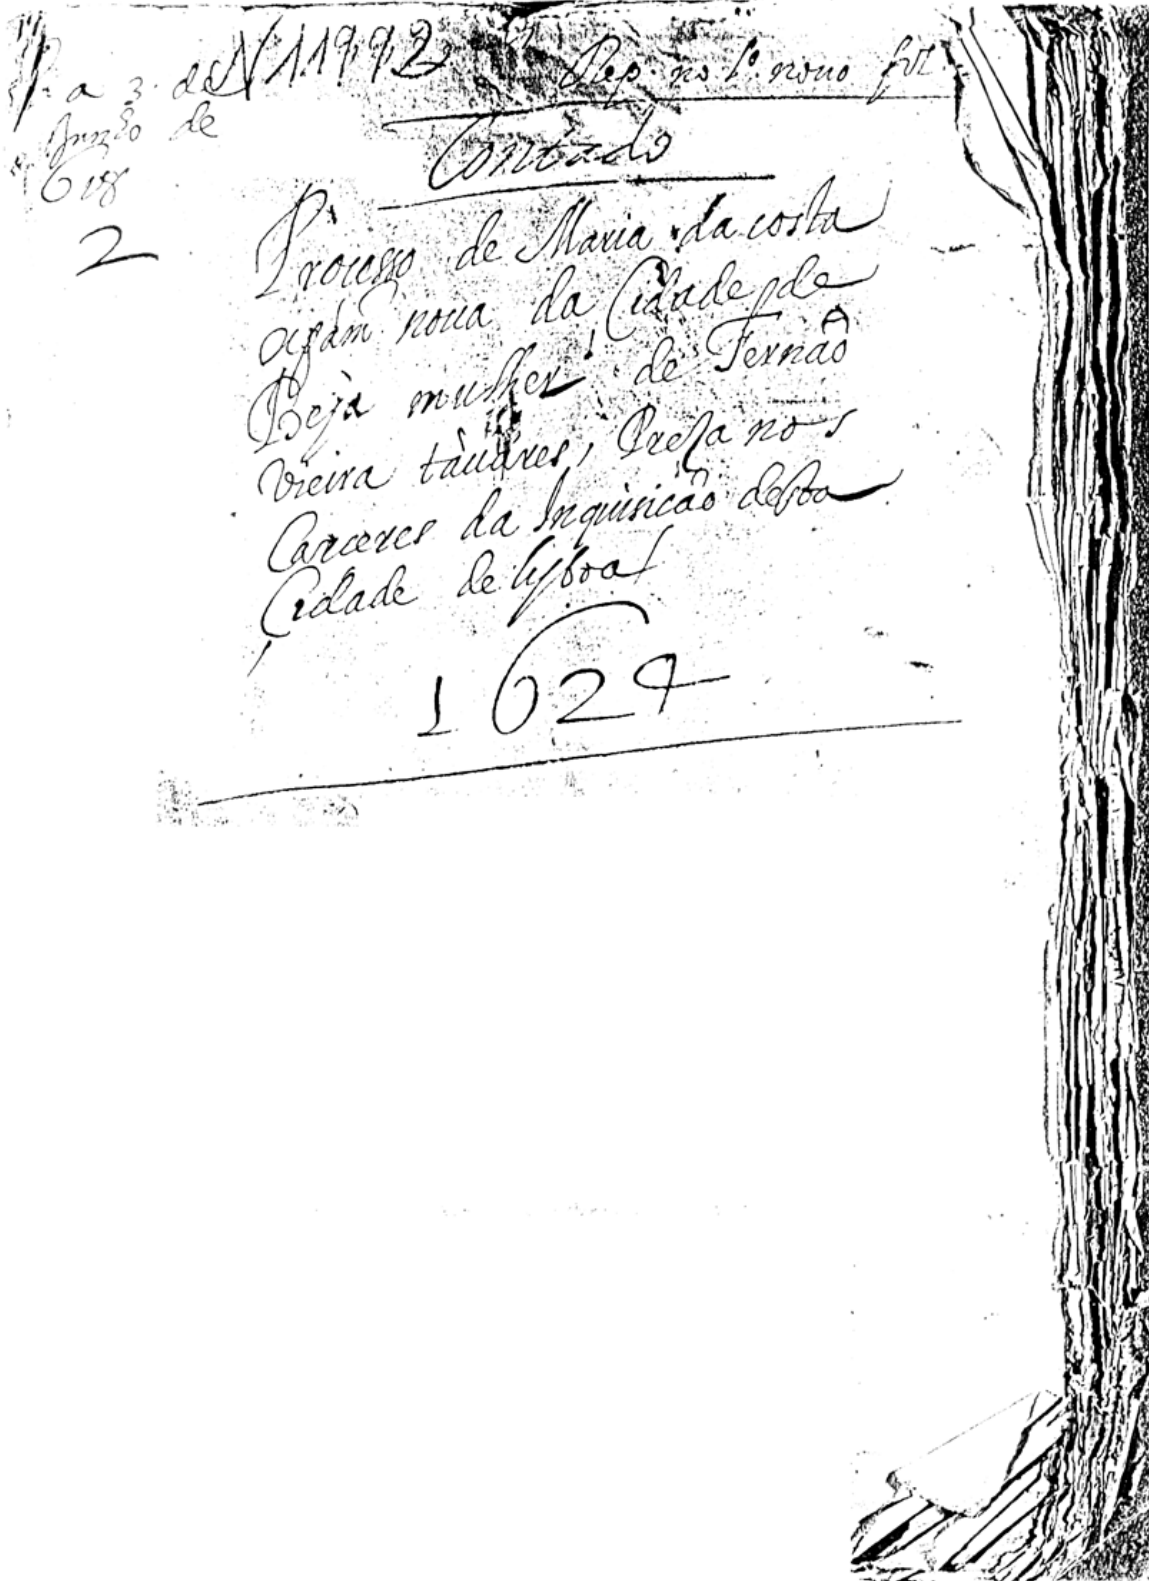 a 3. de N 11992
Junho de
2
Rep. no l.º nouo fol
Contado
Processo de Maria da costa
cristam noua da Cidade de
Beja mulher de Fernaõ
vieira tauares, Preza nos
Carceres da Inquisicaõ desta
Cidade de lixboa
1624